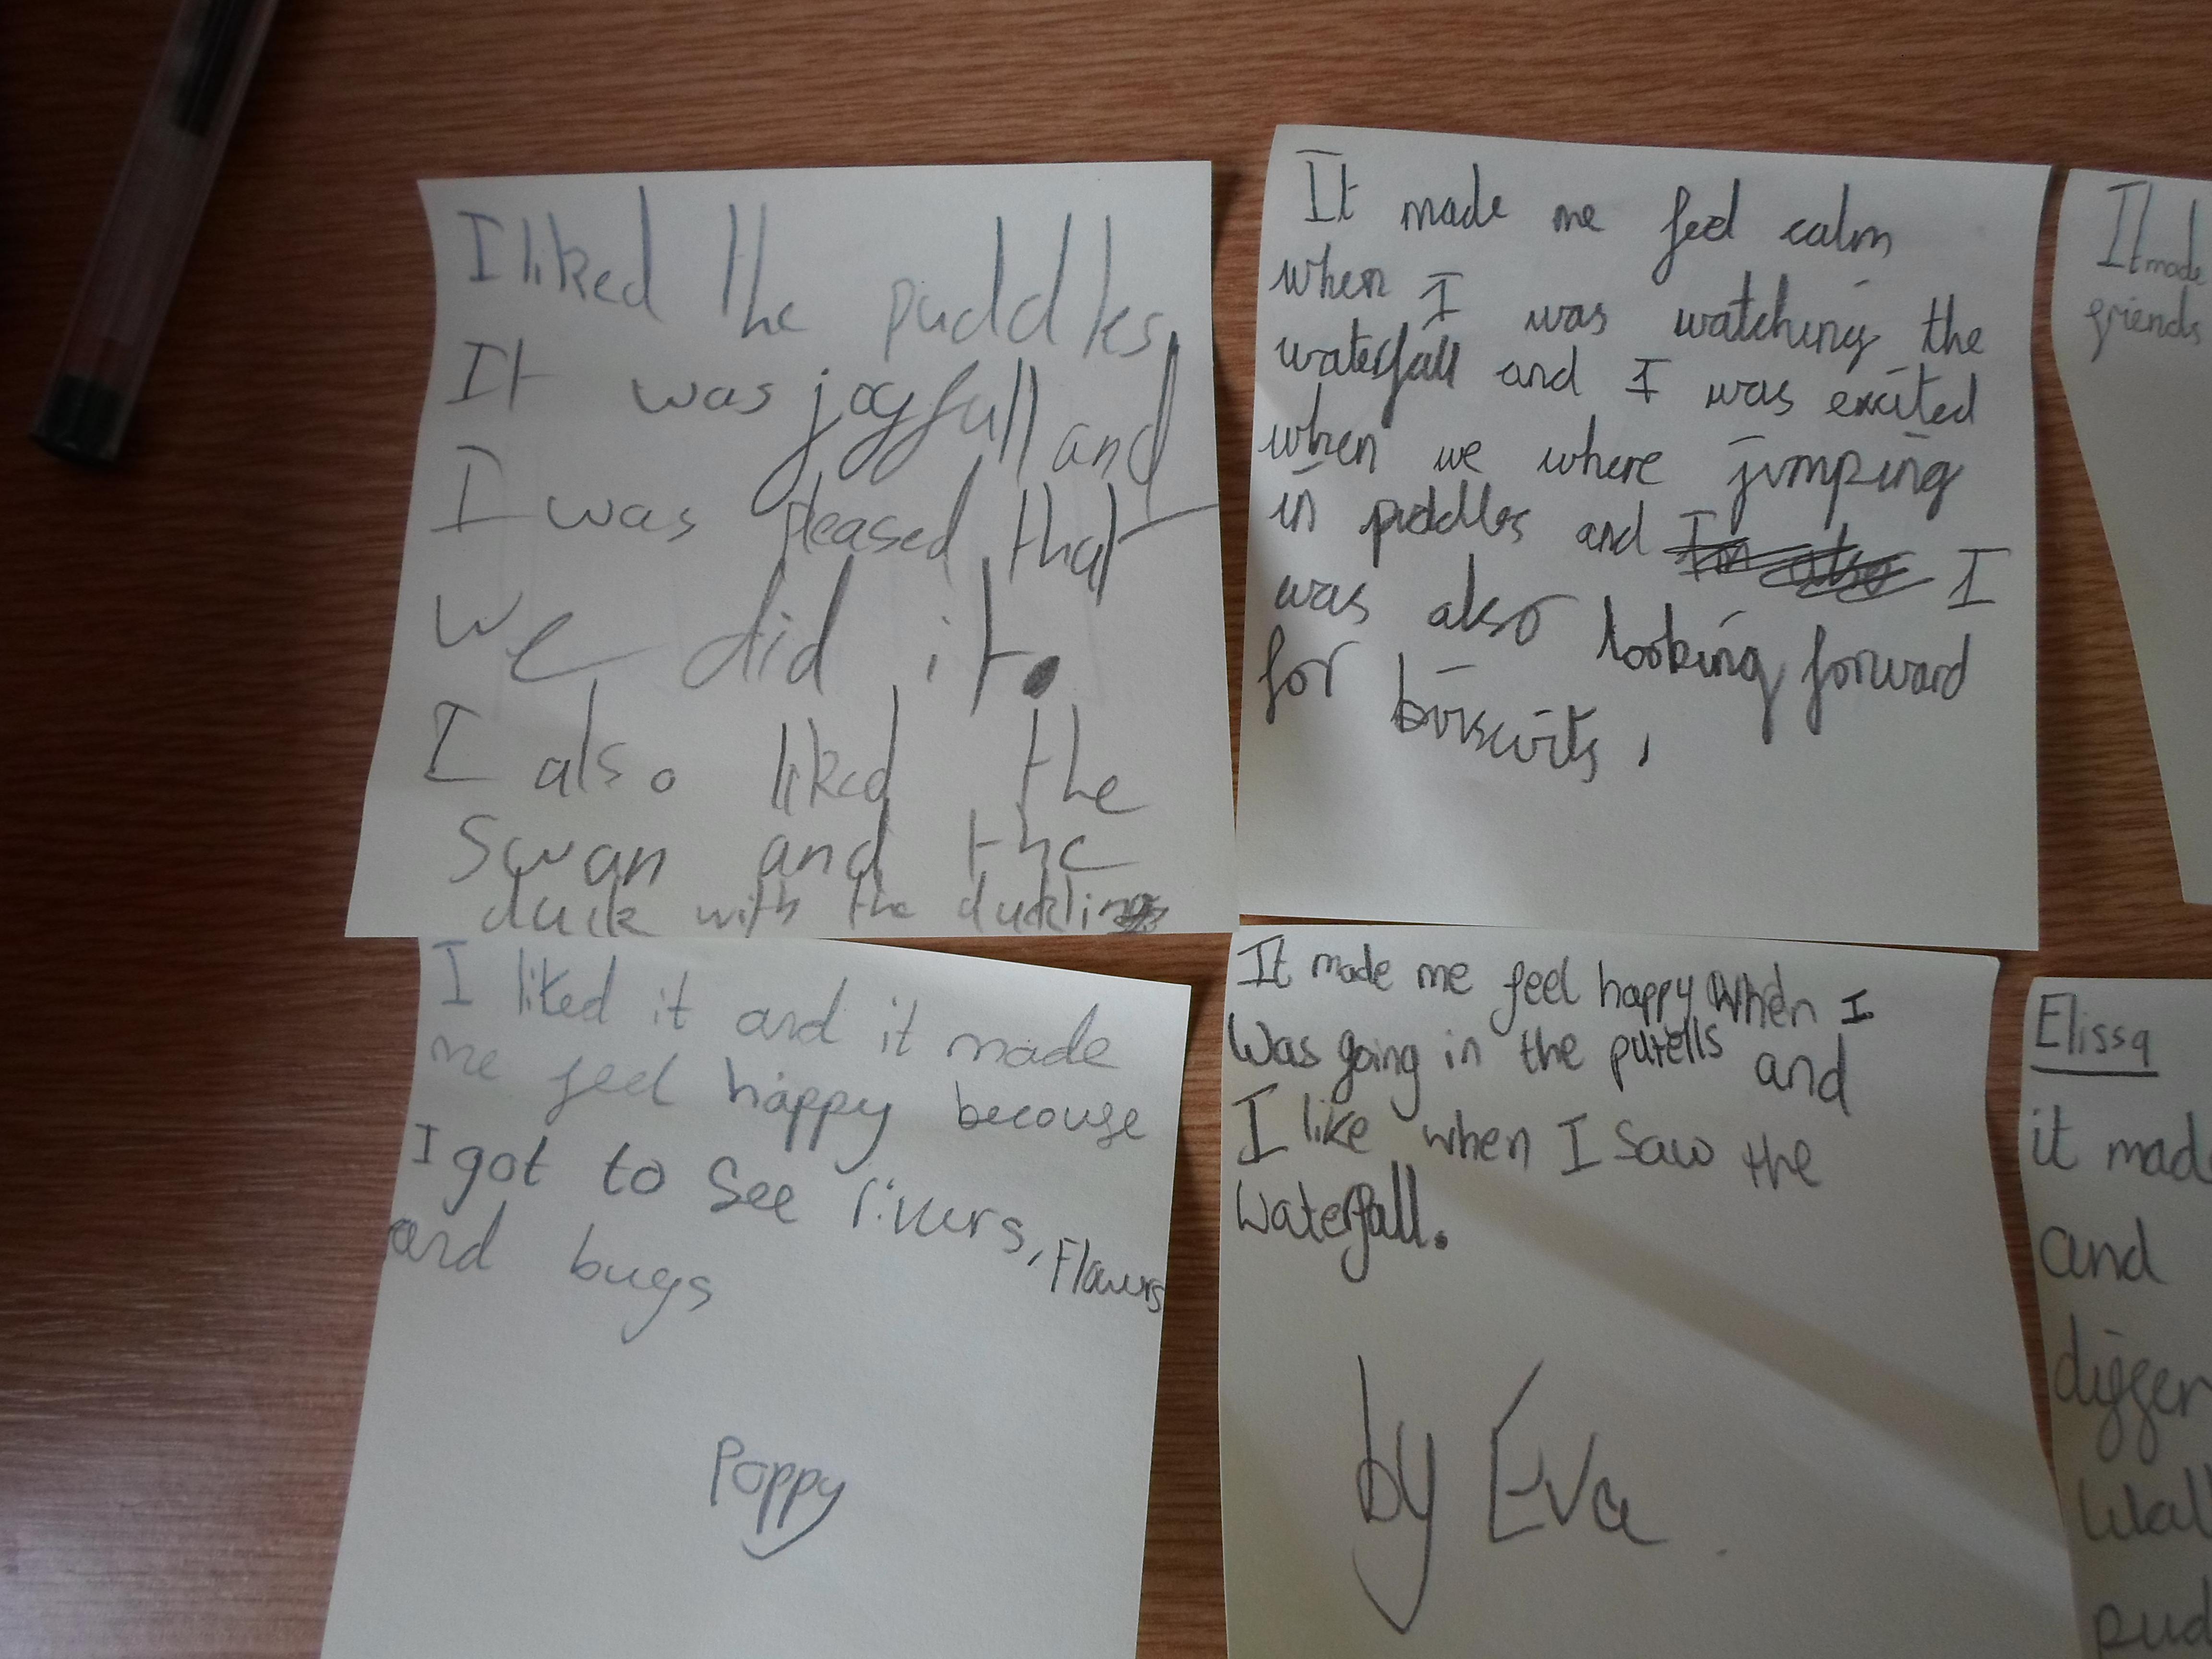 I liked the puddles.
It was joyfull and
I was pleased that
we did it.
I also liked the
Swan and the
duck with the ducklings
It made me feel calm
when I was watching the
waterfall and I was excited
when we where jumping
in puddles and I
was also looking forward
for
It made
friends
I liked it and it made
me feel happy becouse
I got to See rivers, Flawrs
and bugs
Poppy
It made me feel happy When I
Was going in the and
I like when I Saw the
Waterfall.
by Eva
Elissa
it made
and
digger
Wal
pud